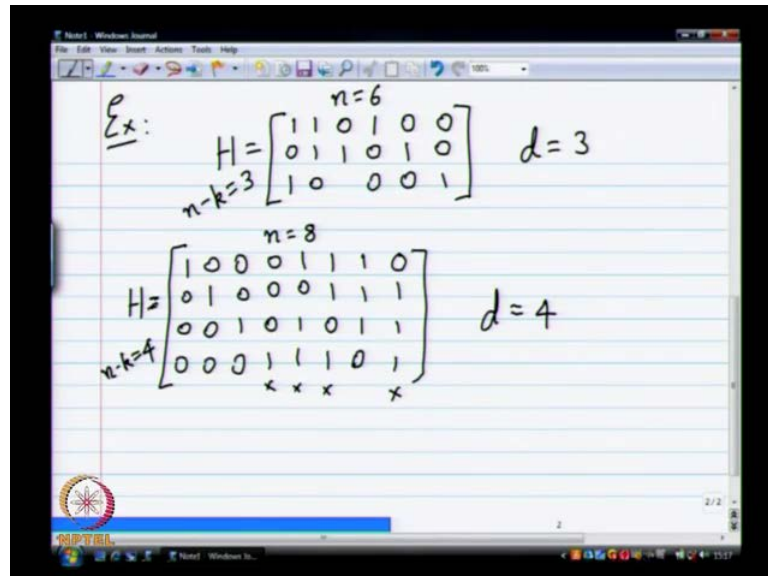 Note1 - Windows Journal
File Edit View Insert Actions Tools Help
100%
Ex:
n=6
H= [1 1 0 1 0 0
0 1 1 0 1 0
1 0 0 0 1]
n-k=3
d = 3
n=8
H= [1 0 0 0 1 1 1 0
0 1 0 0 0 1 1 1
0 0 1 0 1 0 1 1
0 0 0 1 1 1 0 1]
n-k=4
x x x x
d = 4
2/2
2
NPTEL
Note1 - Windows Jo...
15:17